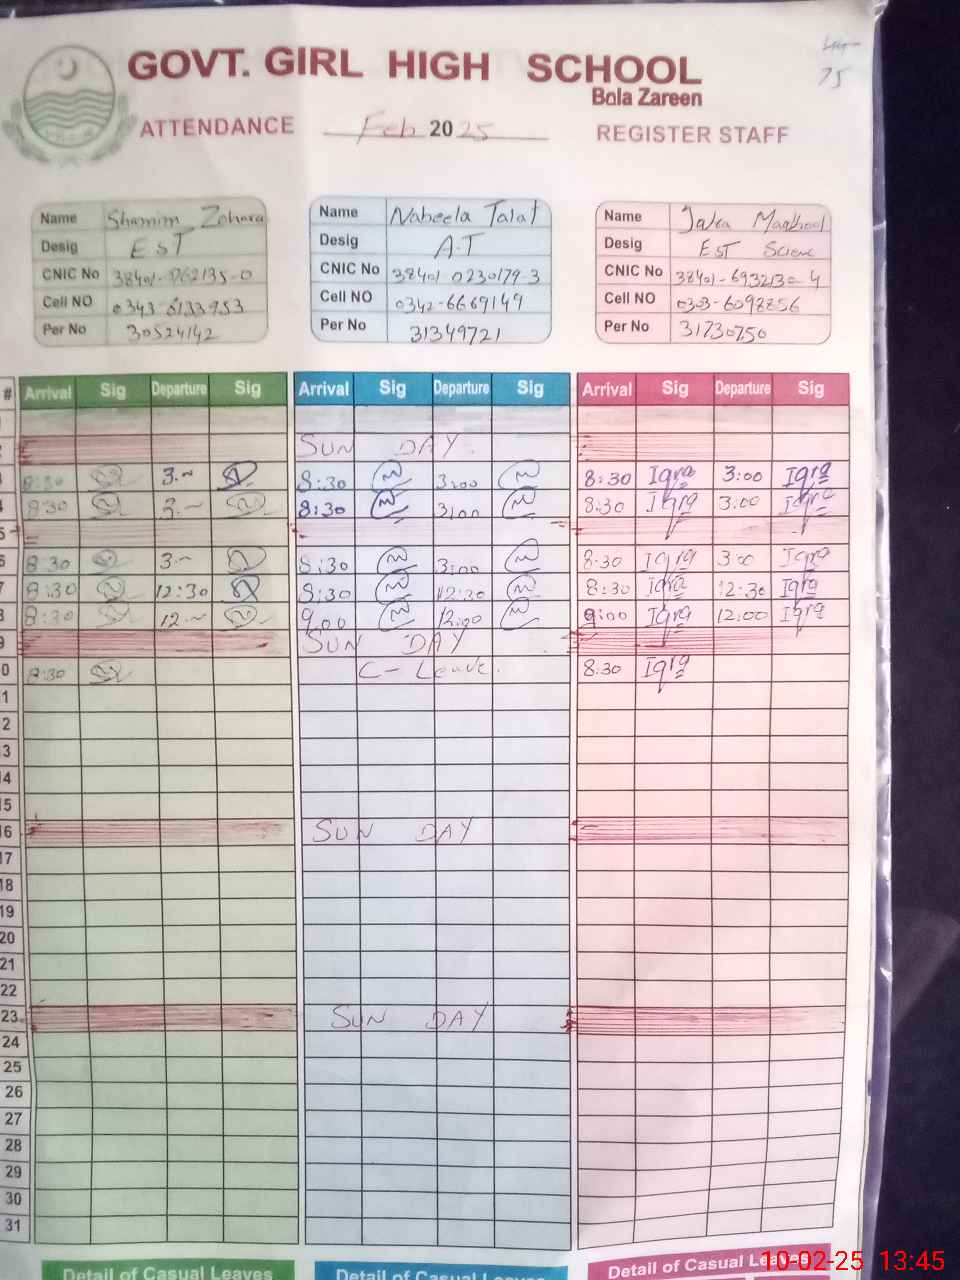 44
75
GOVT. GIRL HIGH SCHOOL
Bola Zareen
ATTENDANCE Feb 2025 REGISTER STAFF
Name Shamim Zohara Name Nabeela Talat Name
Desig EST Desig A.T Desig EST Science
CNIC No CNIC No 38401-0230179-3 CNIC No 38401-6932130-4
Cell NO 0343-6133953 Cell NO 0342-6669149 Cell NO 0303-6098856
Per No 30524142 Per No 31349721 Per No 31730750
# Arrival Sig Departure Sig Arrival Sig Departure Sig Arrival Sig Departure Sig
SUN DAY
8:30 3.~ 8:30 3:00 8:30 Iqra 3:00 Iqra
8:30 3.~ 8:30 3:00 8:30 Iqra 3:00 Iqra
5
6 8:30 3.~ 8:30 3:00 8:30 Iqra 3:00 Iqra
7 8:30 12:30 8:30 12:30 8:30 Iqra 12:30 Iqra
8 8:30 12.~ 9:00 12:00 9:00 Iqra 12:00 Iqra
9 SUN DAY
0 8:30 C-Leave. 8:30 Iqra
1
2
13
14
15
16 SUN DAY
17
18
19
20
21
22
23 SUN DAY
24
25
26
27
28
29
30
31
Detail of Casual Leaves Detail of Casual Leaves Detail of Casual Leaves
10-02-25 13:45